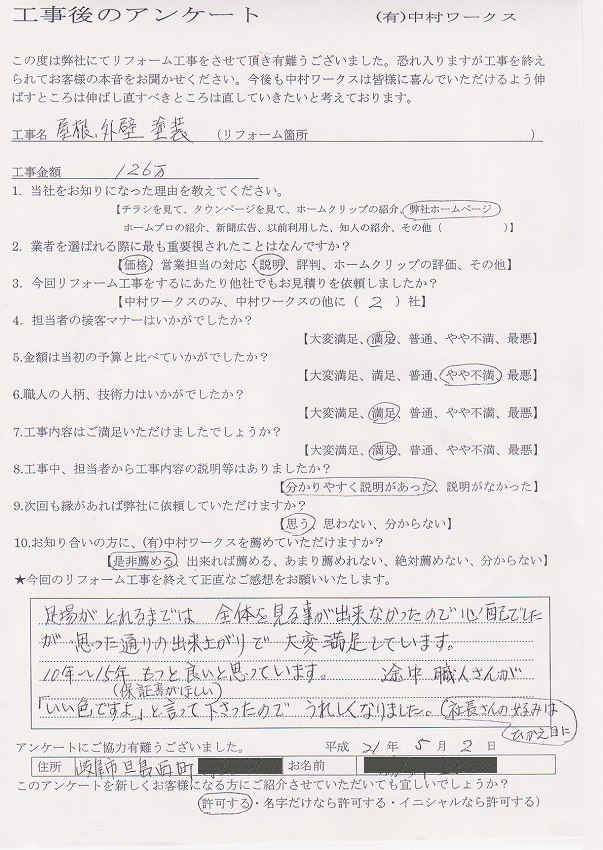 工事後のアンケート　(有)中村ワークス
この度は弊社にてリフォーム工事をさせて頂き有難うございました。恐れ入りますが工事を終え
られてお客様の本音をお聞かせください。今後も中村ワークスは皆様に喜んでいただけるよう伸
ばすところは伸ばし直すべきところは直していきたいと考えております。
工事名 屋根、外壁 塗装　(リフォーム箇所　)
工事金額　126万
1. 当社をお知りになった理由を教えてください。
【チラシを見て、タウンページを見て、ホームクリップの紹介、弊社ホームページ
ホームプロの紹介、新聞広告、以前利用した、知人の紹介、その他（　）】
2. 業者を選ばれる際に最も重要視されたことはなんですか？
【価格、営業担当の対応・説明、評判、ホームクリップの評価、その他】
3. 今回リフォーム工事をするにあたり他社でもお見積りを依頼しましたか？
【中村ワークスのみ、中村ワークスの他に（ 2 ）社】
4. 担当者の接客マナーはいかがでしたか？
【大変満足、満足、普通、やや不満、最悪】
5.金額は当初の予算と比べていかがでしたか？
【大変満足、満足、普通、やや不満、最悪】
6.職人の人柄、技術力はいかがでしたか？
【大変満足、満足、普通、やや不満、最悪】
7.工事内容はご満足いただけましたでしょうか？
【大変満足、満足、普通、やや不満、最悪】
8.工事中、担当者から工事内容の説明等はありましたか？
【分かりやすく説明があった、説明がなかった】
9.次回も縁があれば弊社に依頼していただけますか？
【思う、思わない、分からない】
10.お知り合いの方に、(有)中村ワークスを薦めていただけますか？
【是非薦める、出来れば薦める、あまり薦めれない、絶対薦めない、分からない】
★今回のリフォーム工事を終えて正直なご感想をお願いいたします。
足場がとれるまでは 全体を見る事が出来なかったので心配でした
が 思った通りの出来上がりで 大変満足しています。
10年〜15年 もっと良いと思っています。　途中 職人さんが
(保証書がほしい)
「いい色ですよ」と言って下さったので うれしくなりました。(社長さんの好みは
ひかえ目に
アンケートにご協力有難うございました。　平成 21 年 5 月 2 日
住所 岐阜市旦島西町　お名前
このアンケートを新しくお客様になる方にご紹介させていただいても宜しいでしょうか？
（許可する・名字だけなら許可する・イニシャルなら許可する）